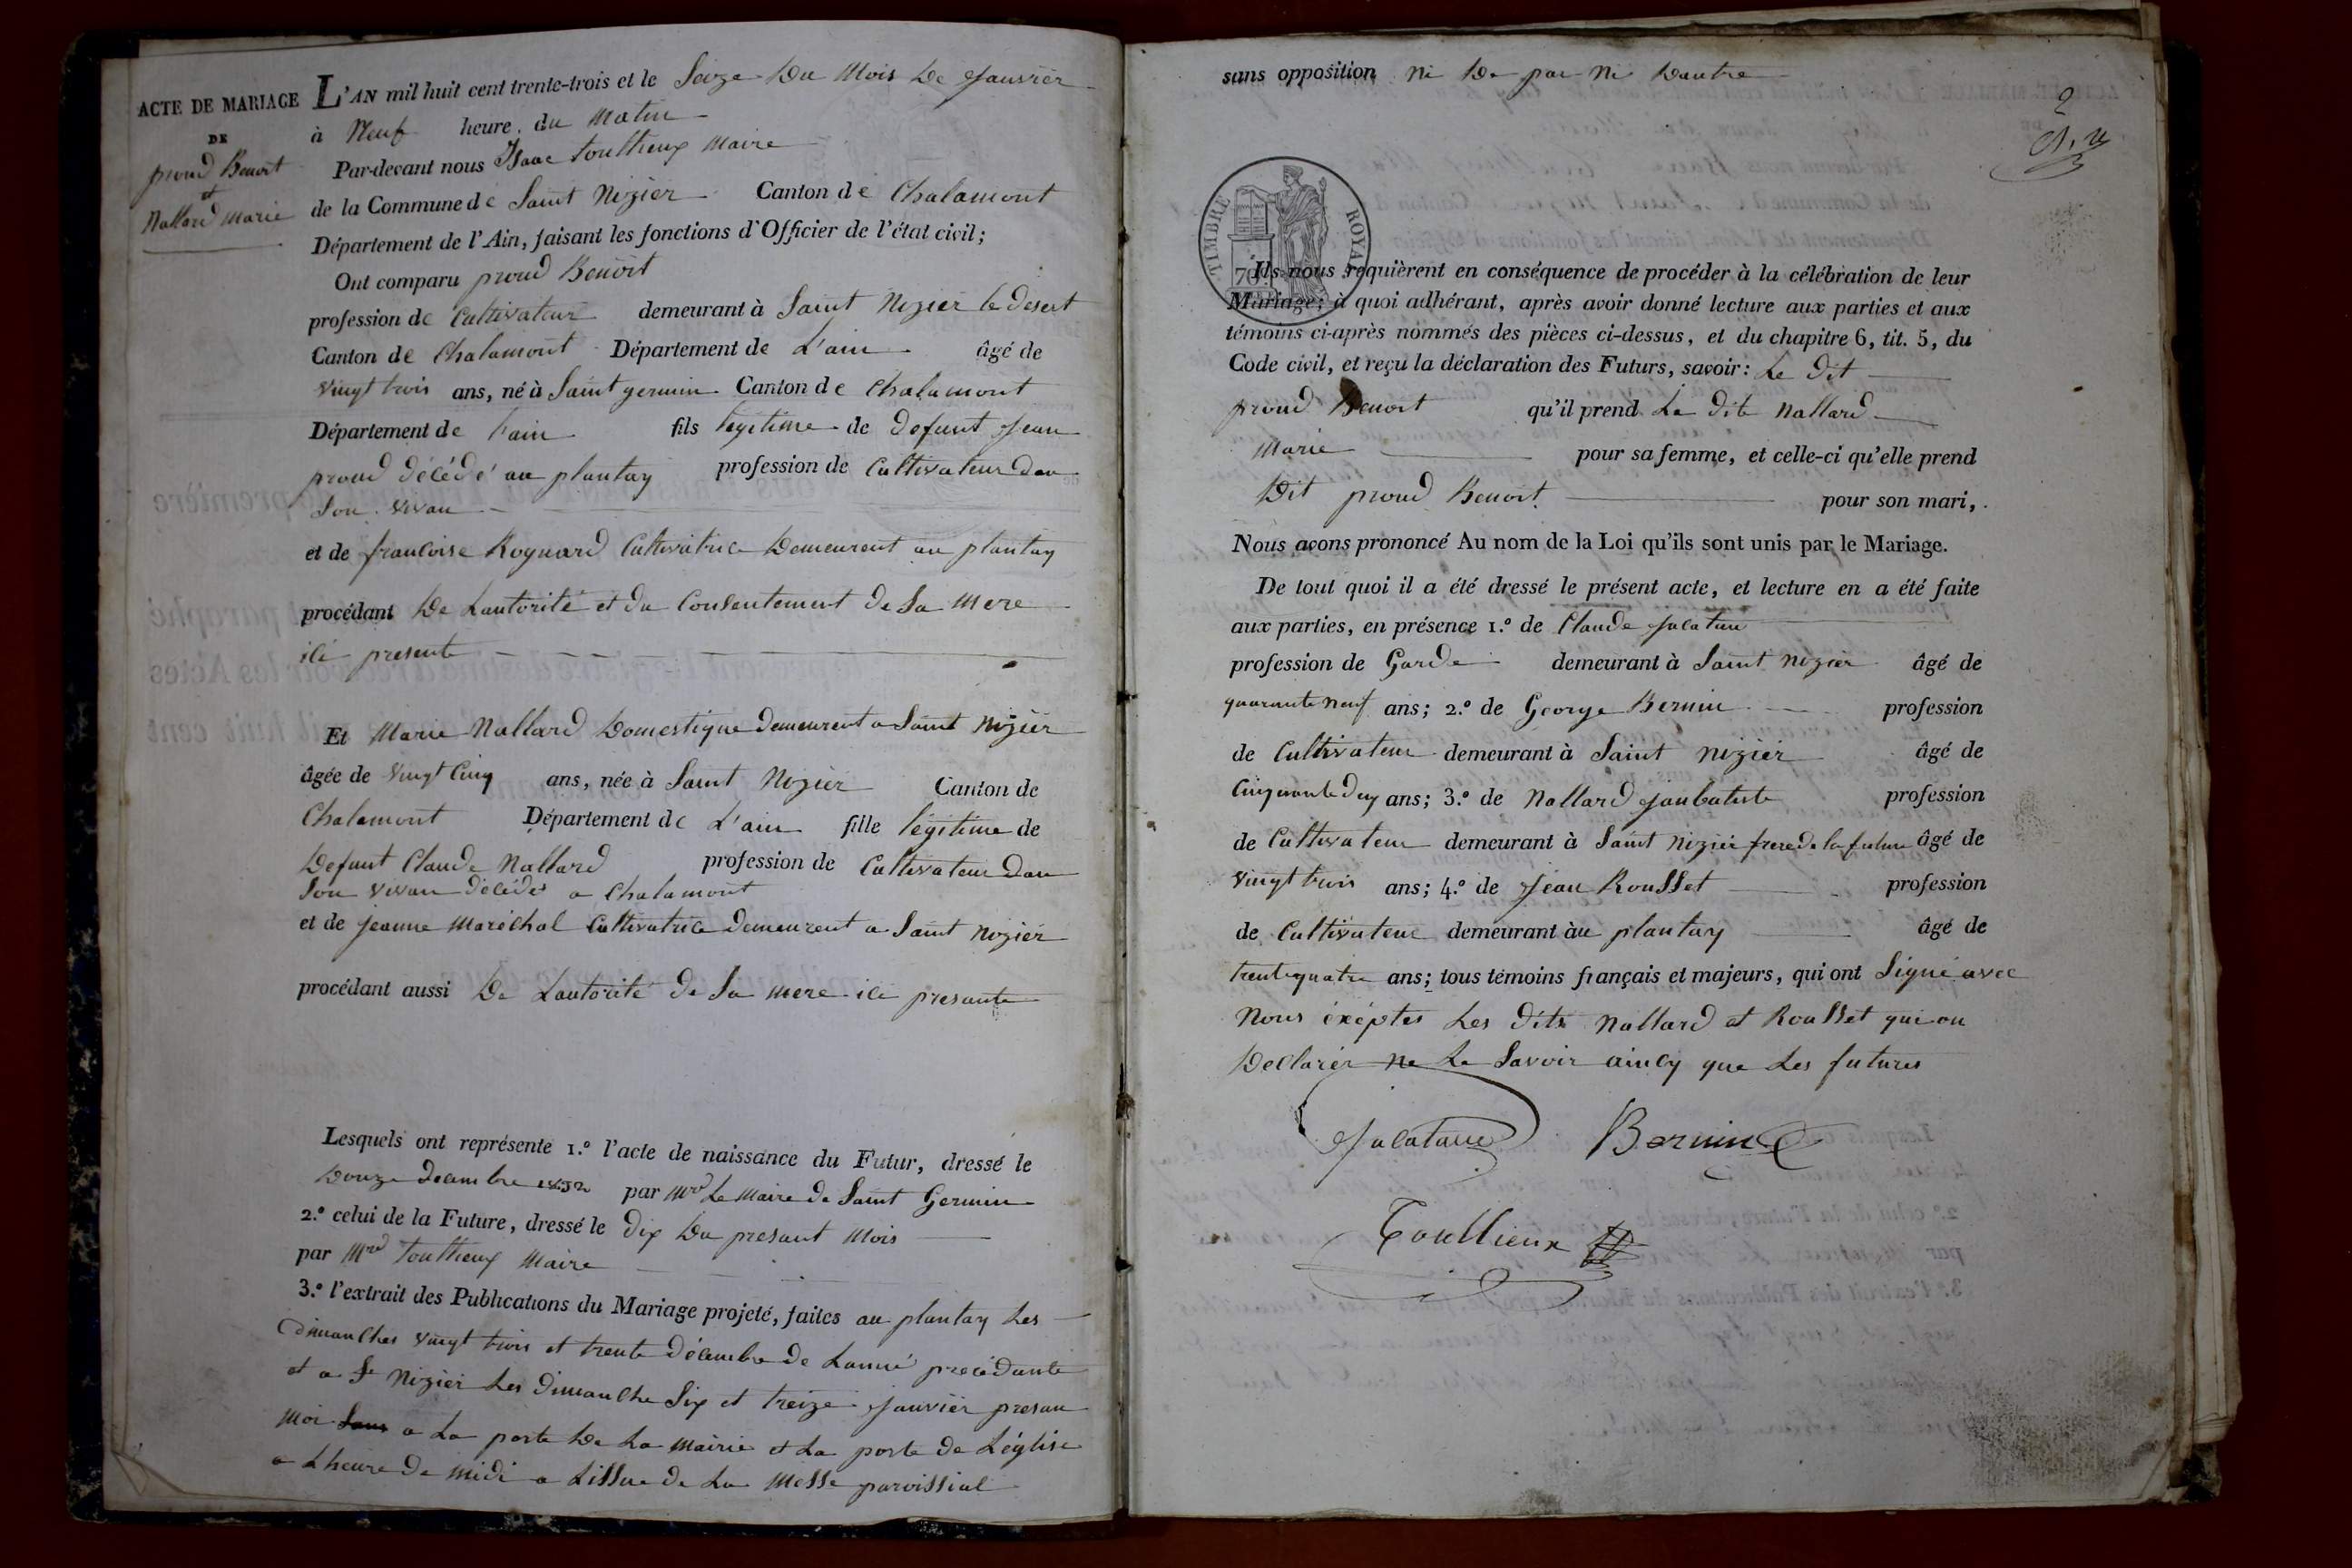 ACTE DE MARIAGE
DE
proud Benoit
et
Nallard marie
L'AN mil huit cent trente-trois et le Seize Du Mois De Janvier
à Neuf heure du Matin
Par-devant nous Isaac toullieux Maire
de la Commune de Saint Nizier Canton de Chalamont
Département de l'Ain, faisant les fonctions d'Officier de l'état civil;
Ont comparu proud Benoit
profession de Cultivateur demeurant à Saint Nizier le desert
Canton de Chalamont Département de L'ain âgé de
vingt trois ans, né à Saint germin Canton de Chalamont
Département de l'ain fils légitime de defunt Jean
proud décédé au plantay profession de Cultivateur dan
Son vivan
et de francoise Roynard Cultivatrice Demeurent au plantay
procédant De Lautorité et du Consentement de Sa Mere
ilé presente
Et Marie Nallard Domestique demeurent a Saint Nizier
âgée de vingt Cinq ans, née à Saint Nizier Canton de
Chalamont Département de L'ain fille légitime de
Defunt Claude Nallard profession de Cultivateur Dan
Son vivan décéder a Chalamont
et de jeanne Maréchal Cultivatrice demeurent a Saint Nizier
procédant aussi De Lautorité de Sa mere ile presante
Lesquels ont représente 1.° l'acte de naissance du Futur, dressé le
Douze decembre 1832 par Mrd Le Maire de Saint Germin
2.° celui de la Future, dressé le dix Du presant Mois
par Mrd toullieux Maire
3.° l'extrait des Publications du Mariage projeté, faites au plantay Les
dimanches vingt trois et trente décembre de Lanné precédante
et a St Nizier Les dimanche Six et treize janvier presan
moi a La porte De La Mairie et La porte de Léglise
a Lheure de midi a Lissue de La Messe paroissial
sans opposition Ni De par Ni Dautre
2
TIMBRE ROYAL
70
Ils nous requièrent en conséquence de procéder à la célébration de leur
Mariage; à quoi adhérant, après avoir donné lecture aux parties et aux
témoins ci-après nommés des pièces ci-dessus, et du chapitre 6, tit. 5, du
Code civil, et reçu la déclaration des Futurs, savoir: Le dit
proud Benoit qu'il prend La dite Nallard
Marie pour sa femme, et celle-ci qu'elle prend
Dit proud Benoit pour son mari,
Nous avons prononcé Au nom de la Loi qu'ils sont unis par le Mariage.
De tout quoi il a été dressé le présent acte, et lecture en a été faite
aux parties, en présence 1.° de Claude Jalature
profession de Garde demeurant à Saint Nizier âgé de
quarante neuf ans; 2.° de George Bernin profession
de Cultivateur demeurant à Saint Nizier âgé de
Cinquante dux ans; 3.° de Nallard Janbatiste profession
de Cultivateur demeurant à Saint Nizier frere de la future âgé de
vingt trois ans; 4.° de Jean Rousset profession
de Cultivateur demeurant àu plantay âgé de
trente quatre ans; tous témoins français et majeurs, qui ont Signé avec
Nous éxéptes Les dits Nallard et Rousset qui on
Declarér ne Le Savoir aincy que Les futures
Jalature Bernin
Toullieux